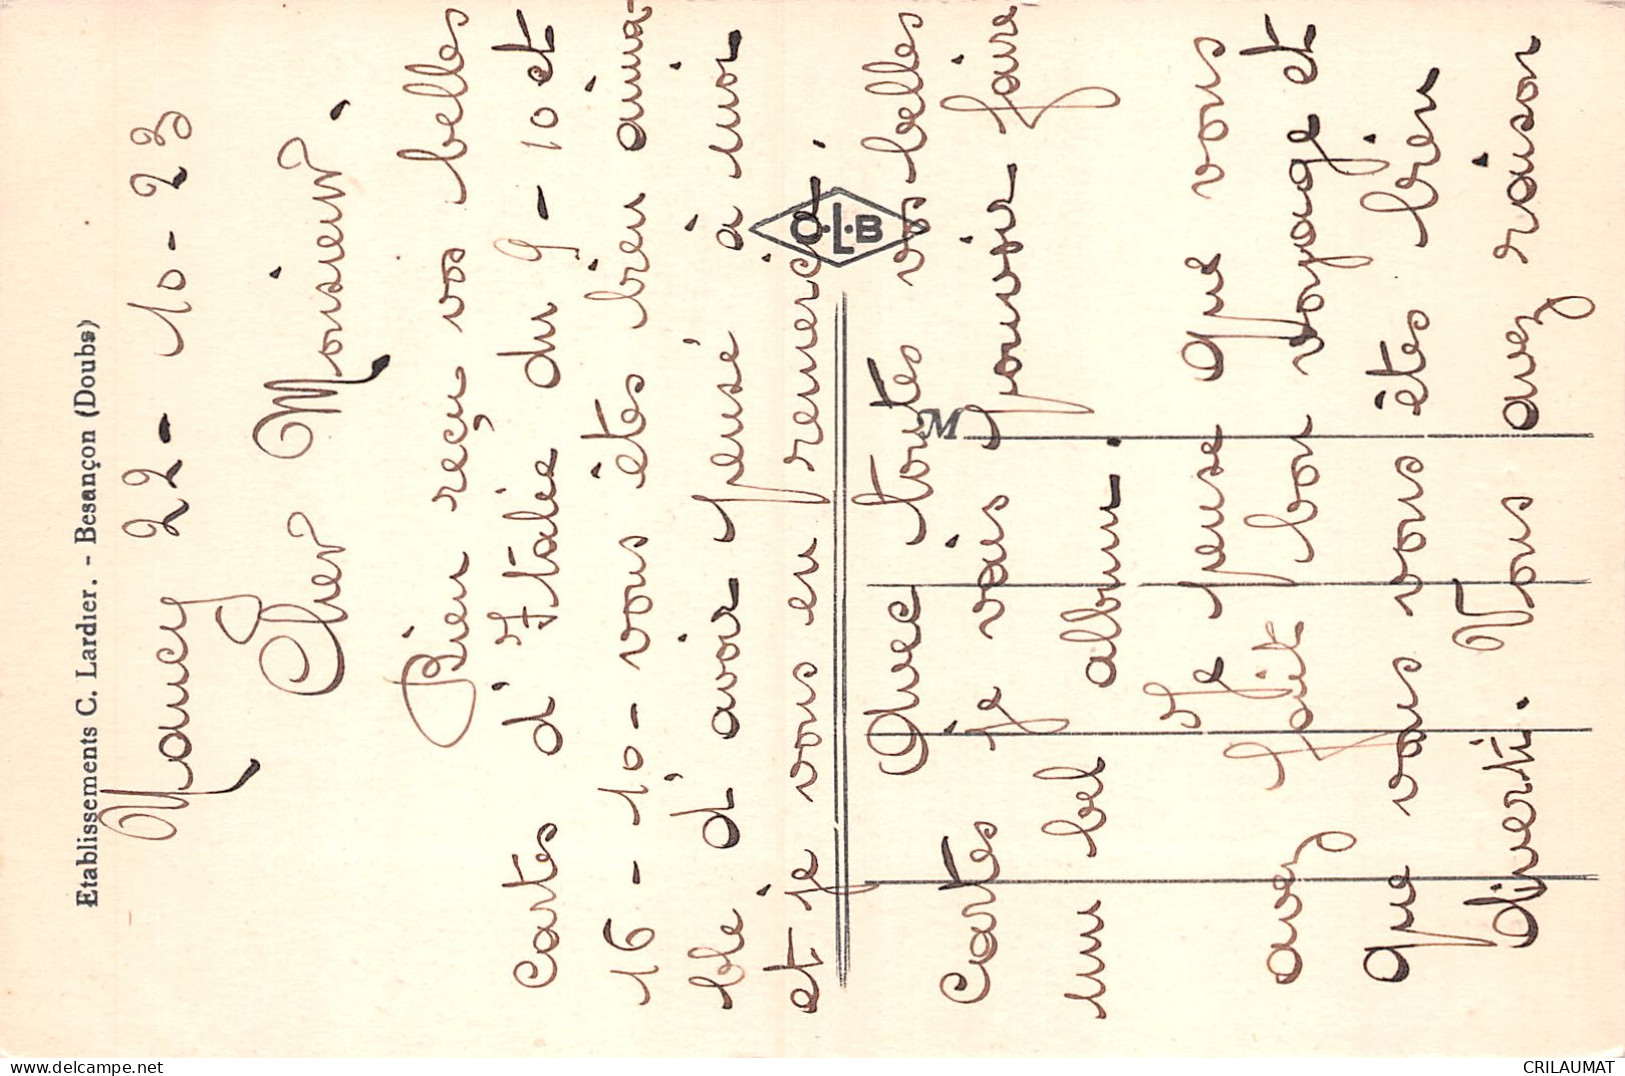 Etablissements C. Lardier. - Besançon (Doubs)
Nancy 22-10-23
Cher Monsieur.
Bien reçu vos belles
cartes d'Italie du 9-10 et
16-10- vous êtes bien aima-
ble d'avoir pensé à moi
et je vous en remercie.
Avec toutes vos belles
cartes je vais pouvoir faire
un bel album.
Je pense que vous
avez fait bon voyage et
que vous vous êtes bien
diverti. Vous avez raison
C.L.B
M
delcampe.net
CRILAUMAT